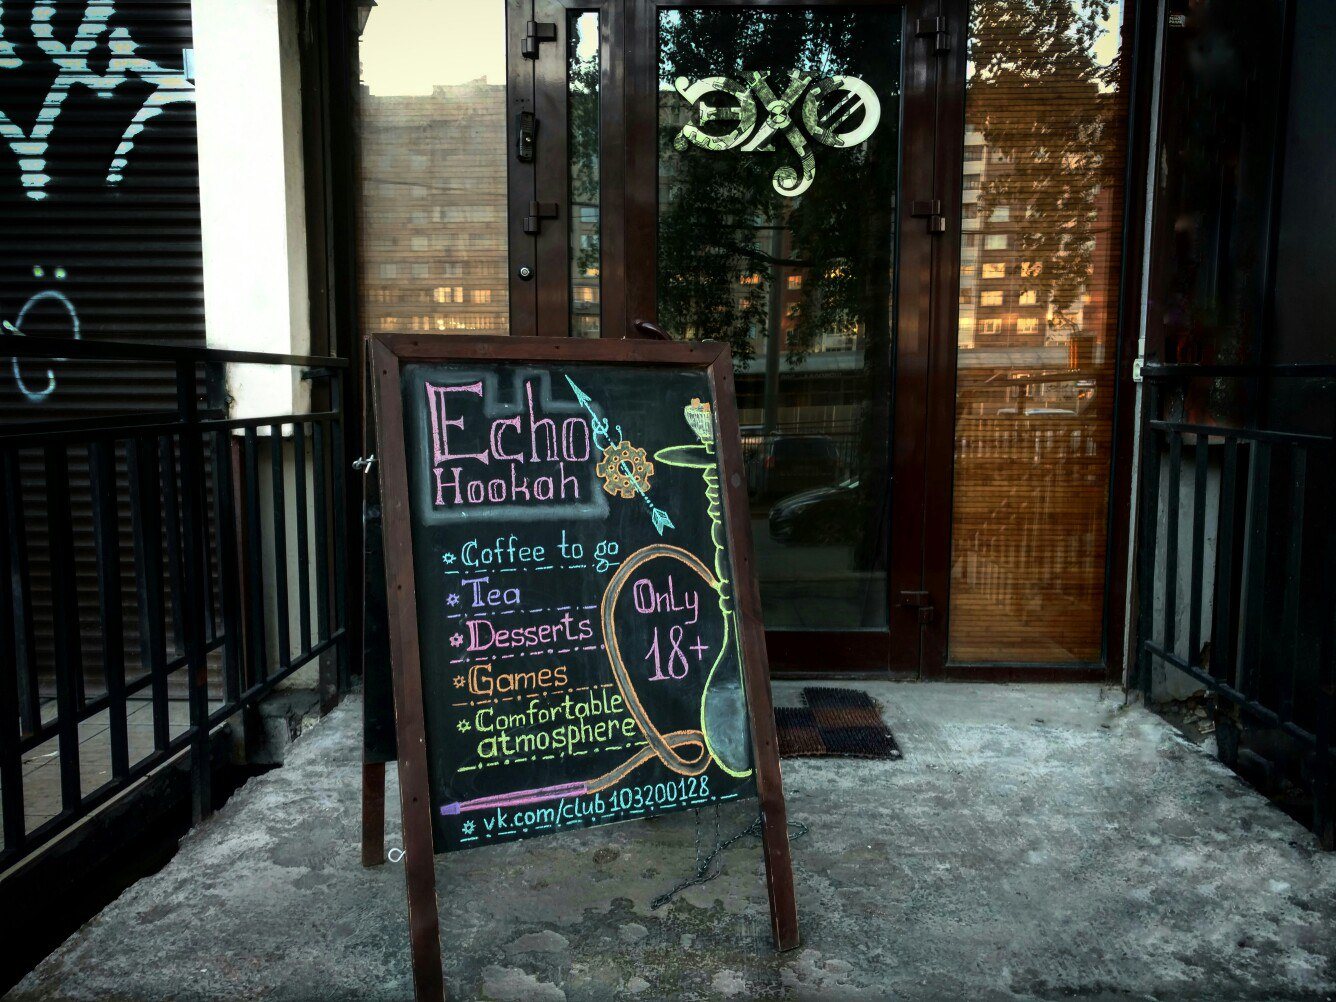 эхо
Echo
Hookah
Coffee to go
Tea
Desserts
Games
Comfortable
atmosphere
Only
18+
vk.com/club103200128